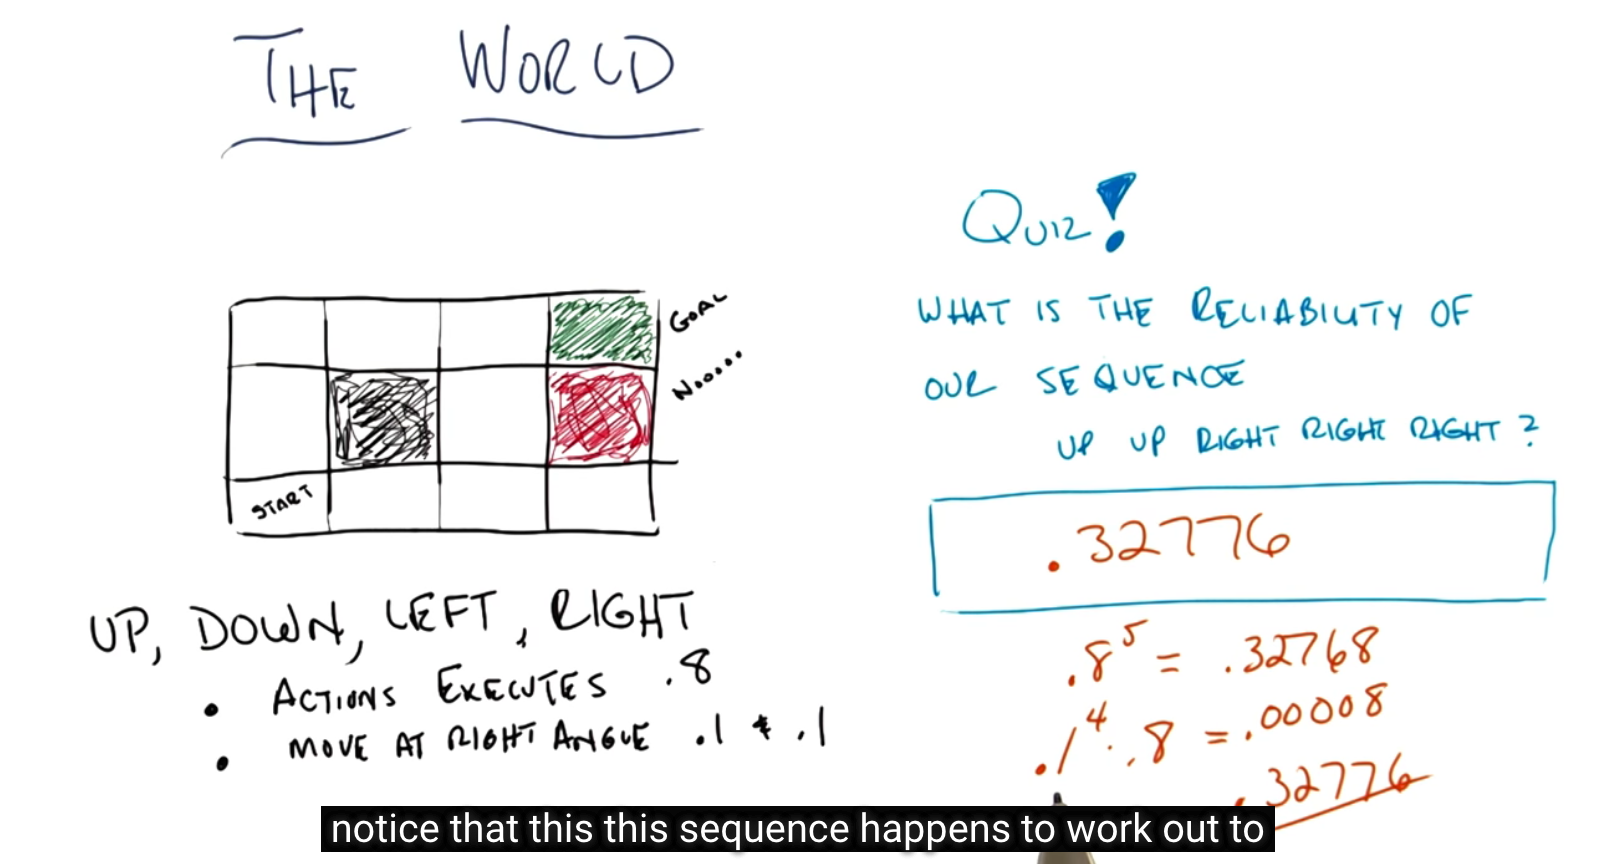 THE WORLD
GOAL
Noooo
START
UP, DOWN, LEFT, RIGHT
• ACTIONS EXECUTES .8
• MOVE AT RIGHT ANGLE .1 & .1
QUIZ!
WHAT IS THE RELIABILITY OF
OUR SEQUENCE
UP UP RIGHT RIGHT RIGHT?
.32776
.8⁵ = .32768
.1⁴ · .8 = .00008
.32776
notice that this this sequence happens to work out to